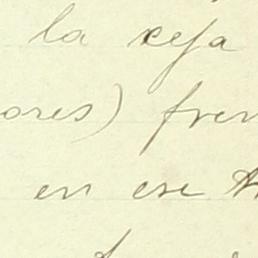 la ceja
ores) fren
en ese